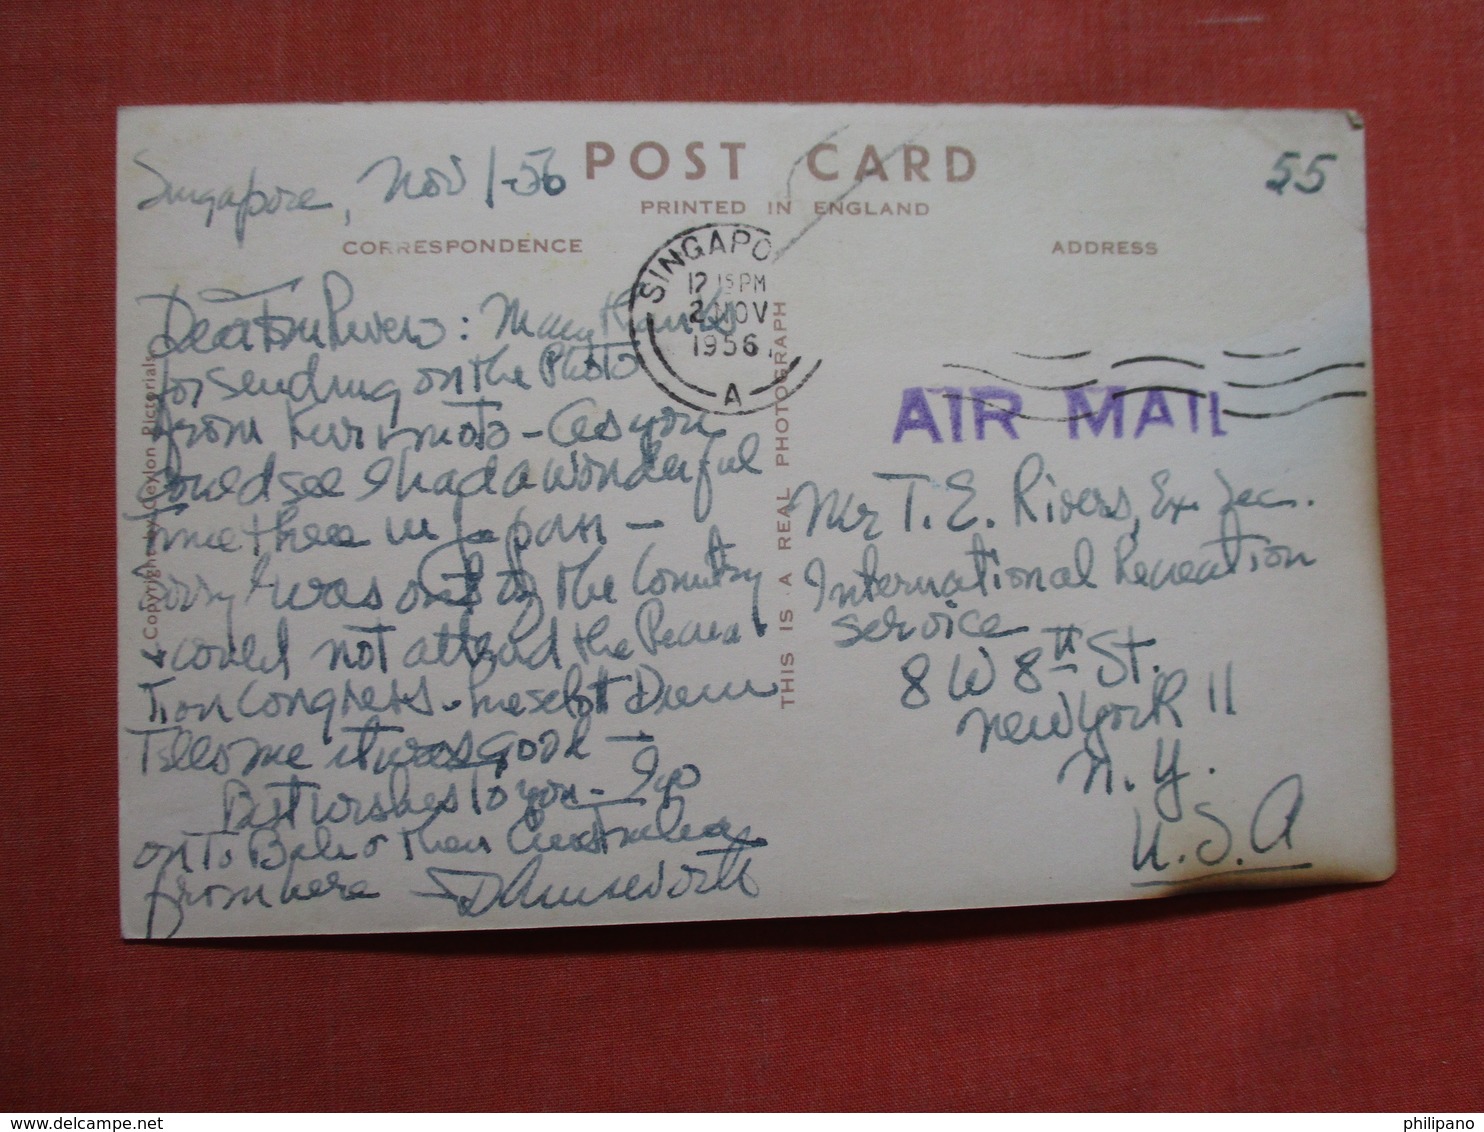 POST CARD
PRINTED IN ENGLAND
CORRESPONDENCE
ADDRESS
55
Singapore, Nov 1-56
Dear Tom Rivers: Many thanks
for sending on the Photo
from Kurimoto - As you
could see I had a wonderful
time there in Japan -
Sorry I was out of the Country
& could not attend the Recrea
tion Congress.
Tells me it was good -
Best wishes to you - I go
on to Bali & then Australia
from here
SINGAPO
12 15 PM
2 NOV
1956
A
AIR MAIL
Mr T. E. Rivers, Ex. Sec.
International Recreation
Service
8 W 8th St.
New York 11
N. Y.
U. S. A
THIS IS A REAL PHOTOGRAPH
Copyright by Ceylon Pictorials
philipano
delcampe.net